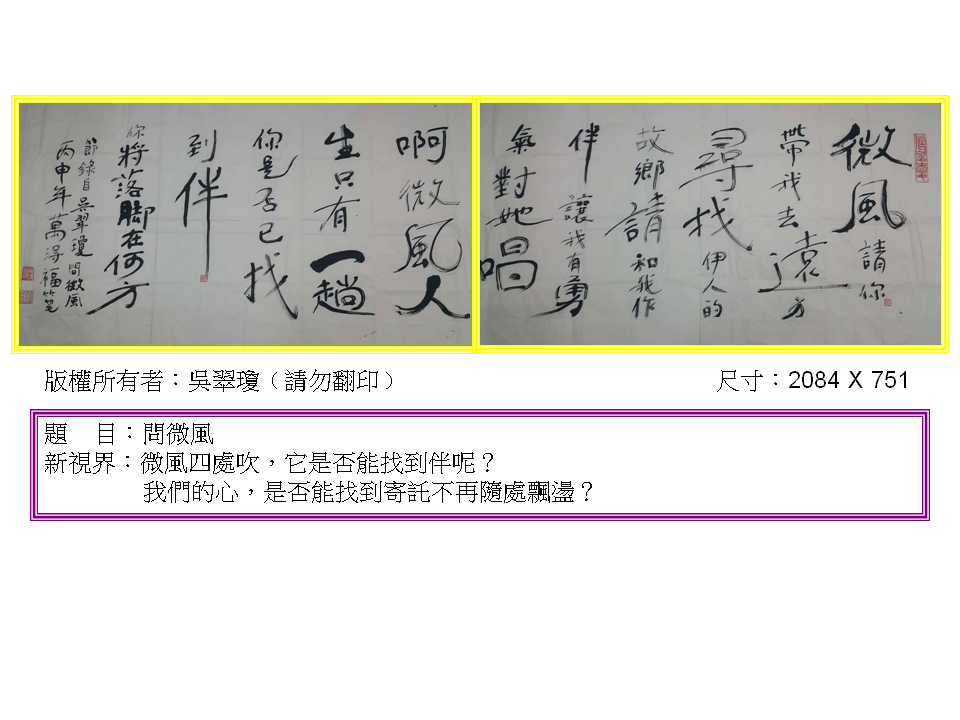 微風請你
帶我去遠方
尋找伊人的
故鄉請和我作
伴讓我有勇
氣對她唱
啊微風人
生只有一趟
你是否已找
到伴
你將落腳在何方
節錄自吳翠瓊問微風
丙申年萬得福笔
版權所有者：吳翠瓊（請勿翻印）
尺寸：2084 X 751
題　目：問微風
新視界：微風四處吹，它是否能找到伴呢？
我們的心，是否能找到寄託不再隨處飄盪？